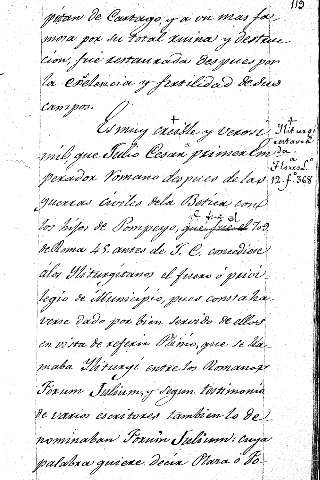 119
pitan de Cartago, y a un mas fa-
mosa por su total ruina y destruc-
cion, fue restaurada despues por
la excelencia y fertilidad de sus
campos.
Es muy creible y verosi-
mil, que Julio Cesar primer Em-
perador Romano despues de las
guerras civiles de la Betica con
los hijos de Pompeyo, q.e fue el
que fue el 709
de Roma 45. antes de J. C. concediese
a los Yliturgitanos el fuero ó privi-
legio de Municipio, pues consta ha-
verse dado por bien servido de ellos
en vista de referir Plinio, que se lla-
maba Yliturgi entre los Romanos
Forum Julium, y segun testimonio
de varios escritores tambien lo de-
nominaban Forum Julium: cuya
palabra quiere decir Plaza ó Fo-
Yliturgi
restaura
da
12. f. 368